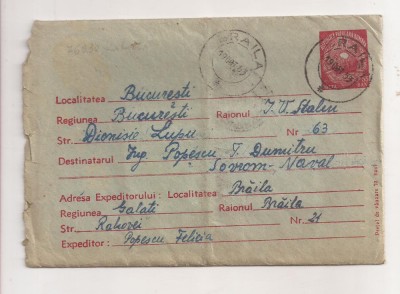 BRAILA
BRAILA
Localitatea București
Regiunea București Raionul I. V. Stalin
Str. Dionisie Lupu Nr 63
Destinatarul Ing. Popescu T. Dumitru
Sovrom-Naval
Adresa Expeditorului: Localitatea Brăila
Regiunea Galati Raionul Brăila
Str. Rahovei Nr. 21
Expeditor: Popescu Felicia